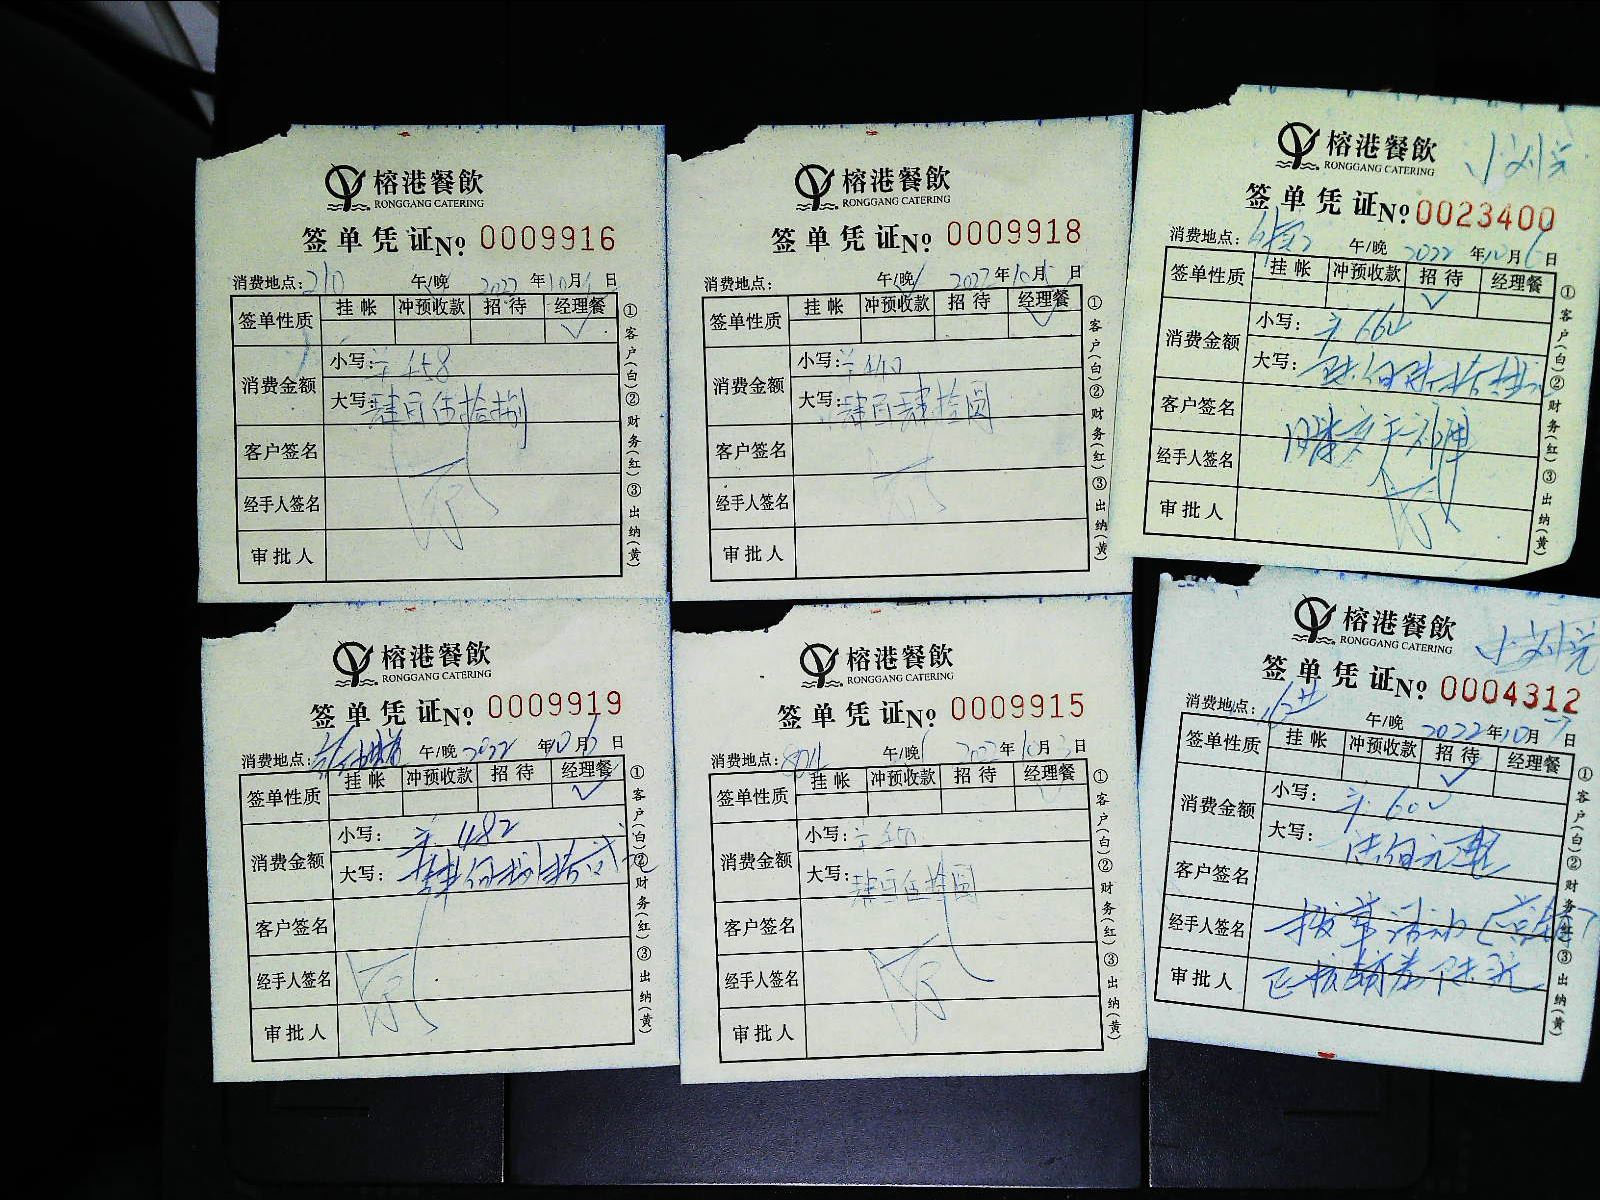 榕港餐飲
RONGGANG CATERING
签单凭证 № 0009916
消费地点: 210 午/晚 2022 年 10 月 日
签单性质 挂帐 冲预收款 招待 经理餐
✓
消费金额 小写: 458
大写: 肆百伍拾捌
客户签名
经手人签名
审批人
①客户(白)②财务(红)③出纳(黄)
榕港餐飲
RONGGANG CATERING
签单凭证 № 0009918
消费地点: 午/晚 2022 年 10 月 日
签单性质 挂帐 冲预收款 招待 经理餐
✓
消费金额 小写: 440
大写: 肆百肆拾圆
客户签名
经手人签名
审批人
①客户(白)②财务(红)③出纳(黄)
榕港餐飲
RONGGANG CATERING
签单凭证 № 0023400
消费地点: 午/晚 2022 年 10 月 日
签单性质 挂帐 冲预收款 招待 经理餐
✓
消费金额 小写:
大写:
客户签名
经手人签名
审批人
①客户(白)②财务(红)③出纳(黄)
榕港餐飲
RONGGANG CATERING
签单凭证 № 0009919
消费地点: 午/晚 2022 年 10 月 日
签单性质 挂帐 冲预收款 招待 经理餐
✓
消费金额 小写: 482
大写: 肆佰捌拾贰
客户签名
经手人签名
审批人
①客户(白)②财务(红)③出纳(黄)
榕港餐飲
RONGGANG CATERING
签单凭证 № 0009915
消费地点: 午/晚 2022 年 10 月 日
签单性质 挂帐 冲预收款 招待 经理餐
✓
消费金额 小写: 450
大写: 肆百伍拾圆
客户签名
经手人签名
审批人
①客户(白)②财务(红)③出纳(黄)
榕港餐飲
RONGGANG CATERING
签单凭证 № 0004312
消费地点: 午/晚 2022 年 10 月 日
签单性质 挂帐 冲预收款 招待 经理餐
✓
消费金额 小写: 600
大写: 陆佰元整
客户签名
经手人签名
审批人
①客户(白)②财务(红)③出纳(黄)